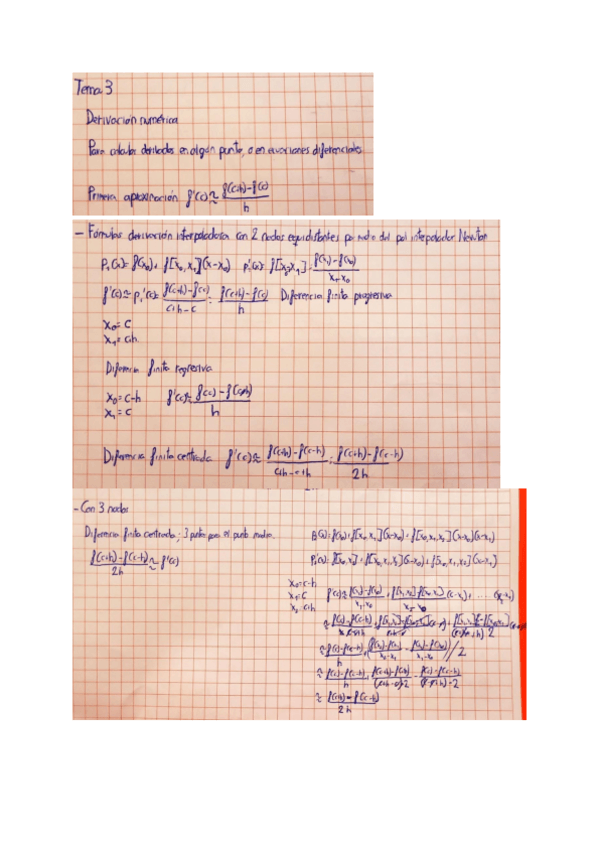 Tema 3
Derivación numérica
Para calcular derivadas en algún punto, o en ecuaciones diferenciales
Primera aproximación f'(c) ≈ (f(c+h) - f(c)) / h
- Fórmulas derivación interpoladora con 2 nodos equidistantes por medio del pol interpolador Newton
P₁(x) = f(x₀) + f[x₀, x₁](x-x₀) p₁'(x) = f[x₀, x₁] = (f(x₁) - f(x₀)) / (x₁-x₀)
f'(c) ≈ p₁'(c) = (f(c+h) - f(c)) / (c+h-c) = (f(c+h) - f(c)) / h Diferencia finita progresiva
x₀ = c
x₁ = c+h
Diferencia finita regresiva
x₀ = c-h f'(c) ≈ (f(c) - f(c-h)) / h
x₁ = c
Diferencia finita centrada f'(c) ≈ (f(c+h) - f(c-h)) / (c+h-c+h) = (f(c+h) - f(c-h)) / 2h
- Con 3 nodos
Diferencia finita centrada; 3 puntos para el punto medio.
(f(c+h) - f(c-h)) / 2h ≈ f'(c)
P₂(x) = f(x₀) + f[x₀, x₁](x-x₀) + f[x₀, x₁, x₂](x-x₀)(x-x₁)
P₂'(x) = f[x₀, x₁] + f[x₀, x₁, x₂](x-x₀) + f[x₀, x₁, x₂](x-x₁)
x₀ = c-h
x₁ = c
x₂ = c+h
≈ (f(c+h) - f(c-h)) / 2h